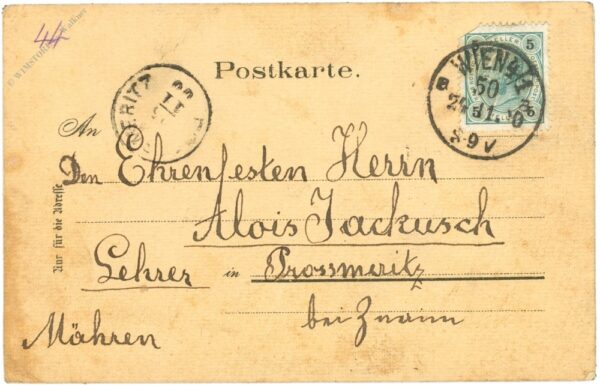 44
Postkarte.
5
WIEN 4/1
50
8-9 V
MERITZ
11
An
Den Ehrenfesten Herrn
Alois Jackusch
Lehrer in Prossmeritz
bei Znaim
Mähren
Nur für die Adresse